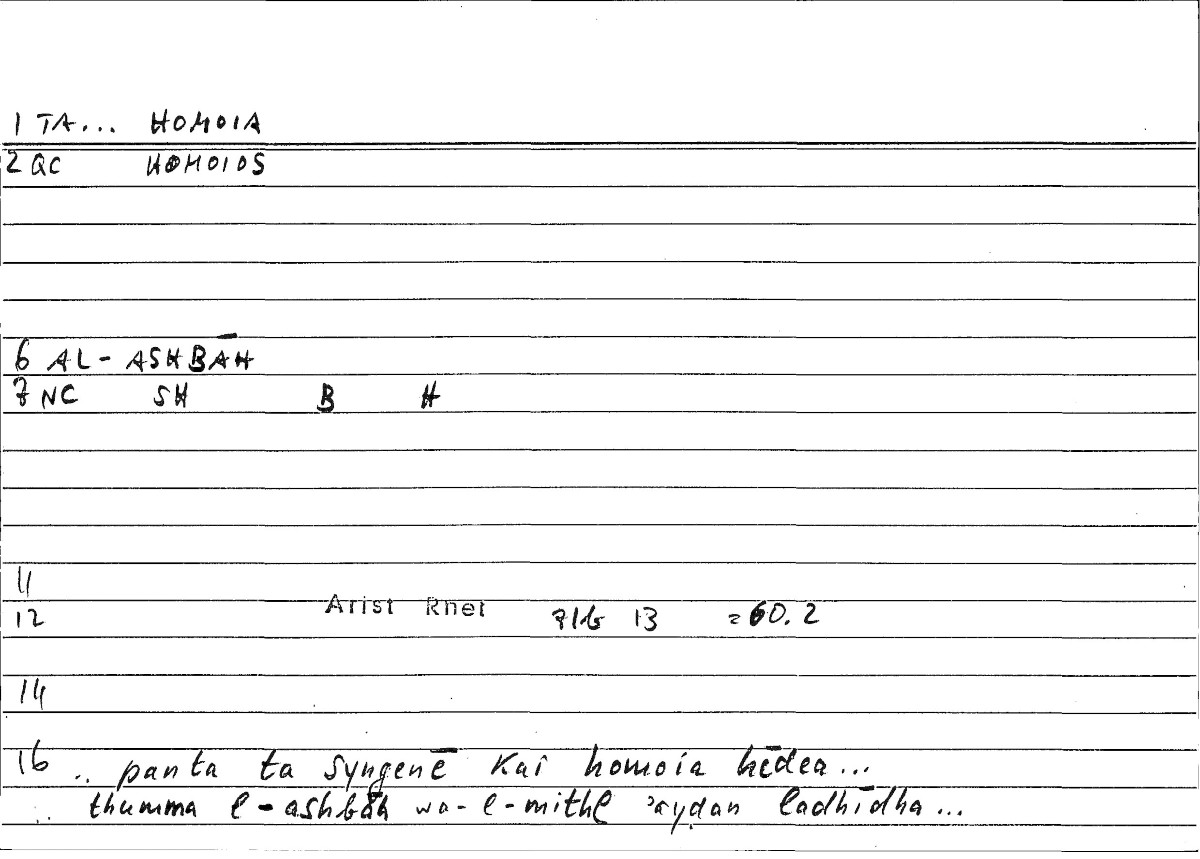 1 TA... HOMOIA
2 QC HOMOIOS
6 AL- ASHBĀH
7 NC SH B H
11
12 Arist Rhet 71b 13 =60.2
14
16 .. panta ta syngenē kai homoia hēdea...
.. thumma l-ashbāh wa-l-mithl ʾayḍan ladhīdha...